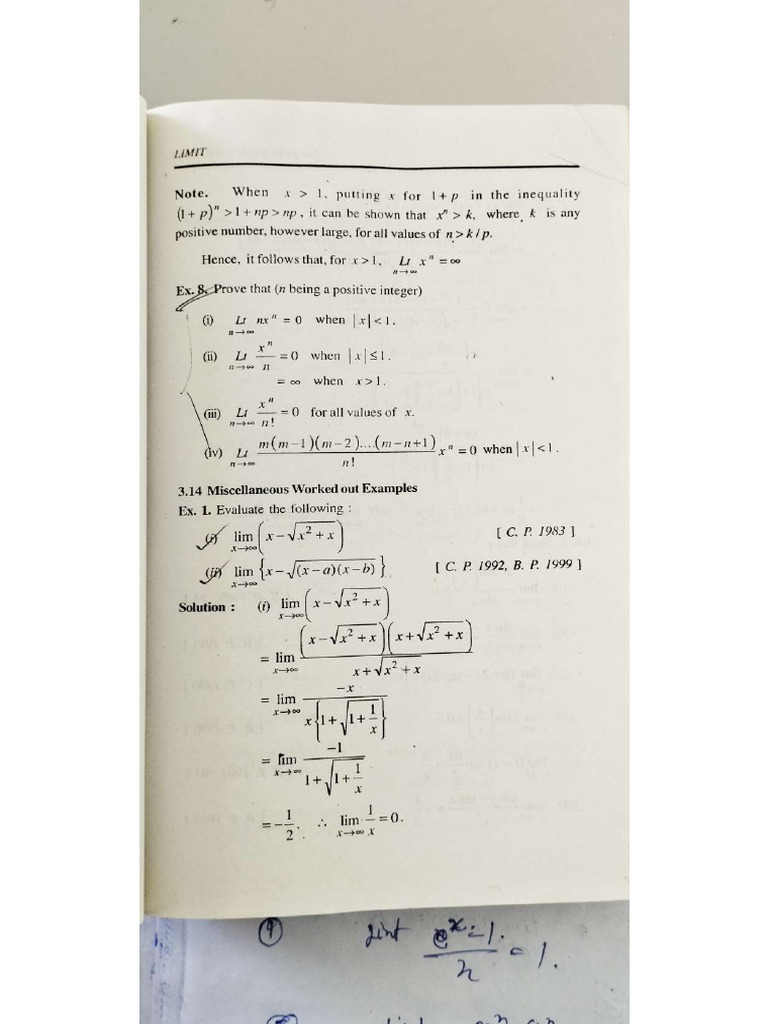 LIMIT
Note. When x > 1, putting x for 1 + p in the inequality
(1 + p)ⁿ > 1 + np > np, it can be shown that xⁿ > k, where k is any
positive number, however large, for all values of n > k / p.
Hence, it follows that, for x > 1, Lt n→∞ xⁿ = ∞
Ex. 8. Prove that (n being a positive integer)
(i) Lt n→∞ nxⁿ = 0 when |x| < 1.
(ii) Lt n→∞ xⁿ/n = 0 when |x| ≤ 1.
= ∞ when x > 1.
(iii) Lt n→∞ xⁿ/n! = 0 for all values of x.
(iv) Lt n→∞ m(m−1)(m−2)....(m−n+1)/n! xⁿ = 0 when |x| < 1.
3.14 Miscellaneous Worked out Examples
Ex. 1. Evaluate the following :
(i) lim x→∞ (x − √(x² + x)) [ C. P. 1983 ]
(ii) lim x→∞ {x − √((x − a)(x − b))} [ C. P. 1992, B. P. 1999 ]
Solution : (i) lim x→∞ (x − √(x² + x))
= lim x→∞ (x − √(x² + x))(x + √(x² + x)) / (x + √(x² + x))
= lim x→∞ −x / x{1 + √(1 + 1/x)}
= lim x→∞ −1 / (1 + √(1 + 1/x))
= −1/2. ∴ lim x→∞ 1/x = 0.
9 eˣ − 1 / x = 1.